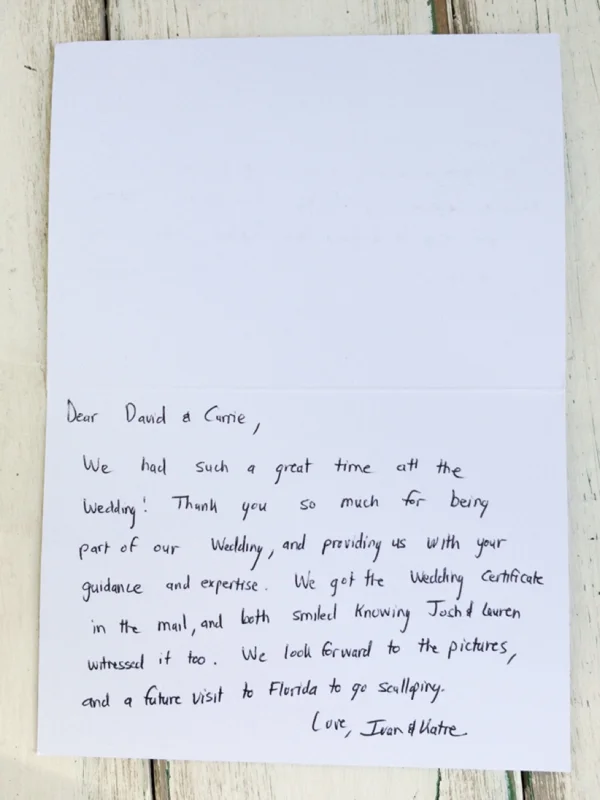 Dear David & Carrie,
We had such a great time att the
Wedding! Thank you so much for being
part of our Wedding, and providing us with your
guidance and expertise. We got the Wedding Certificate
in the mail, and both smiled knowing Josh & Lauren
witnessed it too. We look forward to the pictures,
and a future visit to Florida to go scalloping.
Love, Ivan & Katre